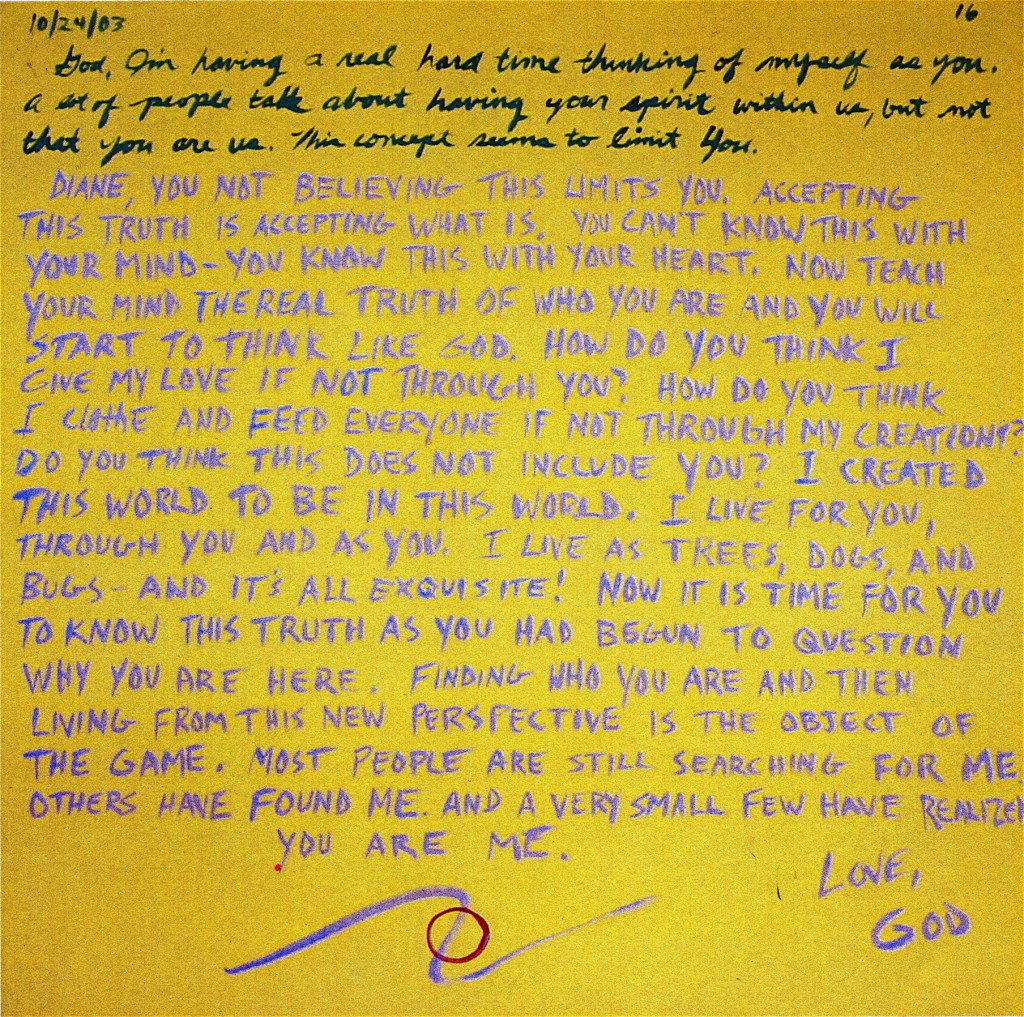 10/24/03 16
God, I'm having a real hard time thinking of myself as you.
A lot of people talk about having your spirit within us, but not
that you are us. This concept seems to limit You.
DIANE, YOU NOT BELIEVING THIS LIMITS YOU. ACCEPTING
THIS TRUTH IS ACCEPTING WHAT IS. YOU CAN'T KNOW THIS WITH
YOUR MIND - YOU KNOW THIS WITH YOUR HEART. NOW TEACH
YOUR MIND THE REAL TRUTH OF WHO YOU ARE AND YOU WILL
START TO THINK LIKE GOD. HOW DO YOU THINK I
GIVE MY LOVE IF NOT THROUGH YOU? HOW DO YOU THINK
I CLOTHE AND FEED EVERYONE IF NOT THROUGH MY CREATIONS?
DO YOU THINK THIS DOES NOT INCLUDE YOU? I CREATED
THIS WORLD TO BE IN THIS WORLD. I LIVE FOR YOU,
THROUGH YOU AND AS YOU. I LIVE AS TREES, DOGS, AND
BUGS - AND IT'S ALL EXQUISITE! NOW IT IS TIME FOR YOU
TO KNOW THIS TRUTH AS YOU HAD BEGUN TO QUESTION
WHY YOU ARE HERE. FINDING WHO YOU ARE AND THEN
LIVING FROM THIS NEW PERSPECTIVE IS THE OBJECT OF
THE GAME. MOST PEOPLE ARE STILL SEARCHING FOR ME
OTHERS HAVE FOUND ME. AND A VERY SMALL FEW HAVE REALIZED
YOU ARE ME.
LOVE,
GOD